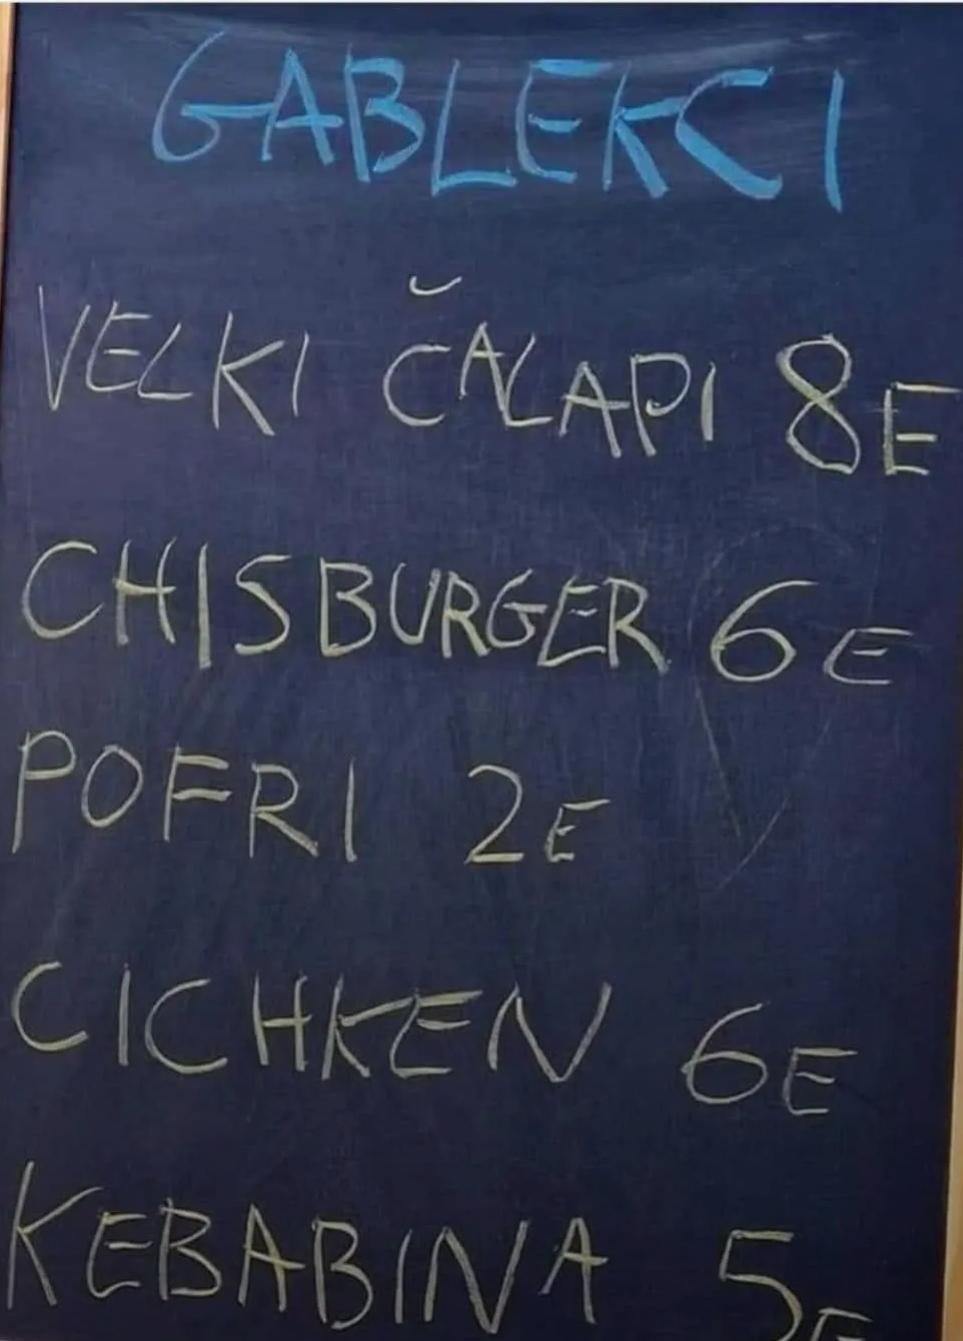 GABLEKCI
VELKI ČALAPI 8E
CHISBURGER 6E
POFRI 2E
CICHKEN 6E
KEBABINA 5E